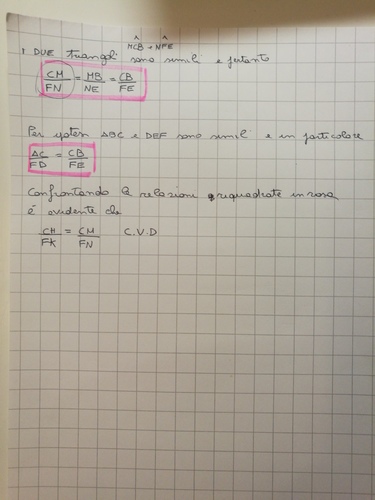 MĈB e NF̂E
I DUE triangoli sono simili e pertanto
CM/FN = MB/NE = CB/FE
Per ipotesi ABC e DEF sono simili e in particolare
AC/FD = CB/FE
Confrontando le relazioni riquadrate in rosa
é evidente che
CH/FK = CM/FN C.V.D